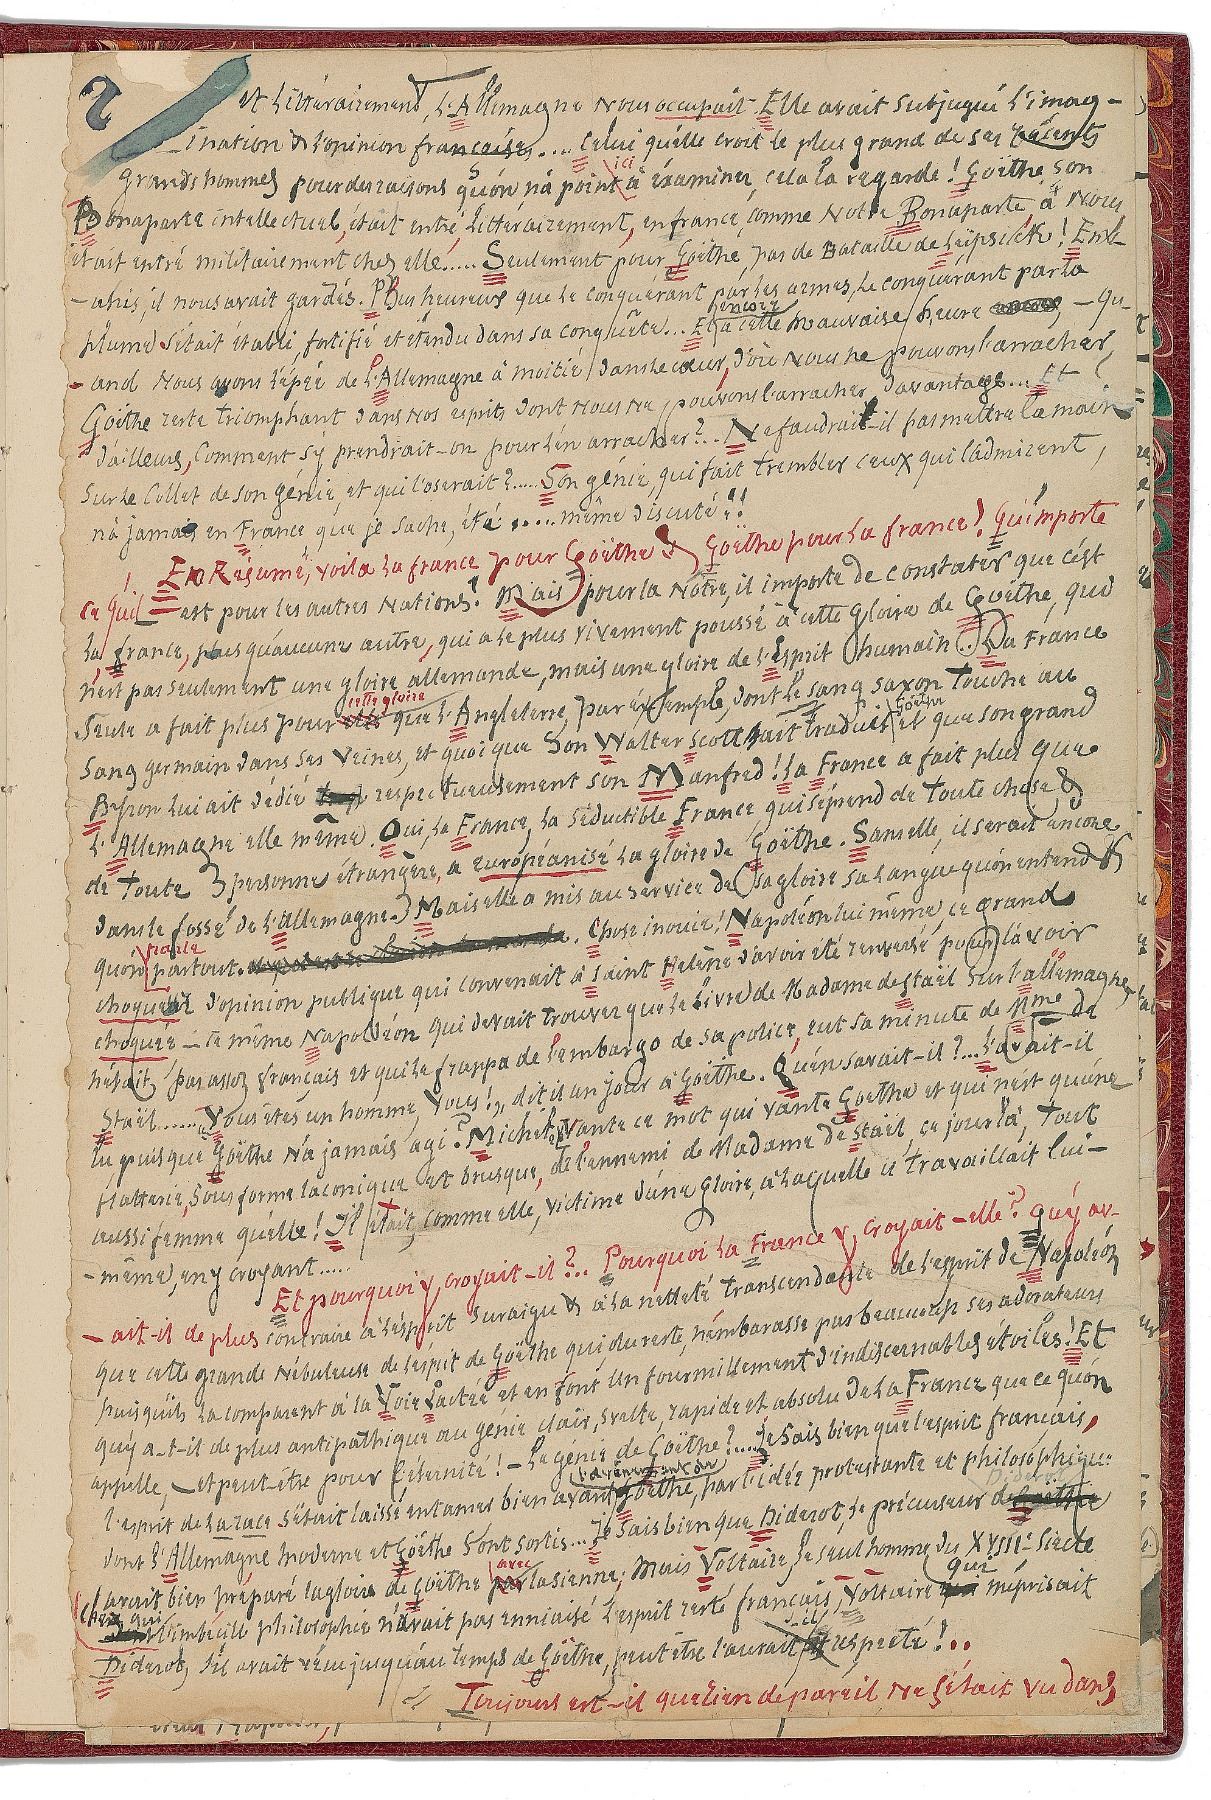 2
et littérairement, l'Allemagne nous occupait. Elle avait subjugué l'imag-
-ination & l'opinion françaises.... Celui qu'elle croit le plus grand de ses récents
grands hommes pour des raisons qu'on n'a point ici à examiner, cela la regarde! Goëthe, son
Bonaparte intellectuel, était entré, littérairement, en france, comme Notre Bonaparte, à Nous
était entré militairement chez elle..... Seulement pour Goëthe, pas de Bataille de Leïpsick! Env-
-ahis, il nous avait gardés. Plus heureux que le conquérant par les armes, le conquérant par la
plume s'était établi, fortifié et étendu dans sa conquête... Et à cette mauvaise heure encore, - qu-
- and Nous avons l'épée de l'Allemagne à moitié dans le cœur, d'où Nous ne pouvons l'arracher,
Goëthe reste triomphant dans nos esprits dont Nous Ne pouvons l'arracher davantage.... Et
d'ailleurs, Comment s'y prendrait-on pour l'en arracher?.. Ne faudrait-il pas mettre la main
sur le Collet de son génie, et qui l'oserait?..... Son génie, qui fait trembler ceux qui l'admirent,
n'a jamais en France que je sache, été ..... même discuté!!
En Résumé, voilà la france pour Goëthe & Goëthe pour la france! Qu'importe
ce qu'il est pour les autres Nations! Mais pour la Nôtre, il importe de constater que c'est
la france, plus qu'aucune autre, qui a le plus vivement poussé à cette gloire de Goëthe, qui
n'est pas seulement une gloire allemande, mais une gloire de l'Esprit humain... La France
Seule a fait plus pour cette gloire que l'Angleterre, par exemple, dont le sang saxon touche au
sang germain dans ses veines, et quoique Son Walter Scott ait traduit Goëthe et que son grand
Byron lui ait dédié respectueusement son Manfred! La France a fait plus que
l'Allemagne elle même. Oui, la France, la séductible France qui s'éprend de toute chose &
de toute personne étrangère, a européanisé la gloire de Goëthe. Sans elle, il serait encore
dans le fossé de l'Allemagne. Mais elle a mis au service de sa gloire sa langue qu'on entend &
qu'on parle partout. Chose inouie! Napoléon lui même, ce grand
choqueur d'opinion publique, qui convenait à Saint Helène d'avoir été renversé pour l'avoir
choquée - ce même Napoléon qui devait trouver que le livre de Madame de Staël sur l'allemagne
n'était pas assez français et qui le frappa de l'embargo de sa police, eut sa minute de Mme de
Staël...... „Vous êtes un homme, Vous!„ dit il un jour à Goëthe. Qu'en savait-il?... L'avait-il
lu, puisque Goëthe n'a jamais agi? Michelet vante ce mot qui vante Goethe et qui n'est qu'une
flatterie, sous forme laconique et brusque, de l'ennemi de Madame de Staël, ce jour là, tout
aussi femme qu'elle! Il était, comme elle, victime d'une gloire, à laquelle il travaillait lui-
-même, en y croyant.....
Et pourquoi y croyait-il?.. Pourquoi la France y croyait-elle? Qu'y av-
- ait-il de plus contraire à l'esprit suraigu & à la netteté transcendante de l'esprit de Napoléon
que cette grande Nébuleuse de l'esprit de Goëthe qui, du reste, n'embarasse pas beaucoup ses adorateurs
puisqu'ils la comparent à la Voie Lactée et en font un fourmillement d'indiscernables étoiles! Et
qu'y a-t-il de plus antipathique au génie clair, svelte, rapide et absolu de la France que ce qu'on
appelle, - et peut-être pour l'éternité! - le génie de Goëthe?.... Je Sais bien que l'esprit français,
l'esprit de la race s'était laissé entamer bien avant l'avènement de Goëthe, par l'idée protestante et philosophique
dont l'Allemagne moderne et Goëthe sont sortis... Je Sais bien que Diderot, le précurseur Diderot
avait bien préparé la gloire de Goëthe avec la sienne; Mais Voltaire, le seul homme du XVIIIe Siècle
chez qui l'imbécille philosophie n'avait pas enniaisé l'esprit resté français, Voltaire qui méprisait
Diderot, s'il avait vécu jusqu'au temps de Goëthe, peut être l'aurait-il respecté!..
Toujours est-il que rien de pareil Ne s'était vu dans